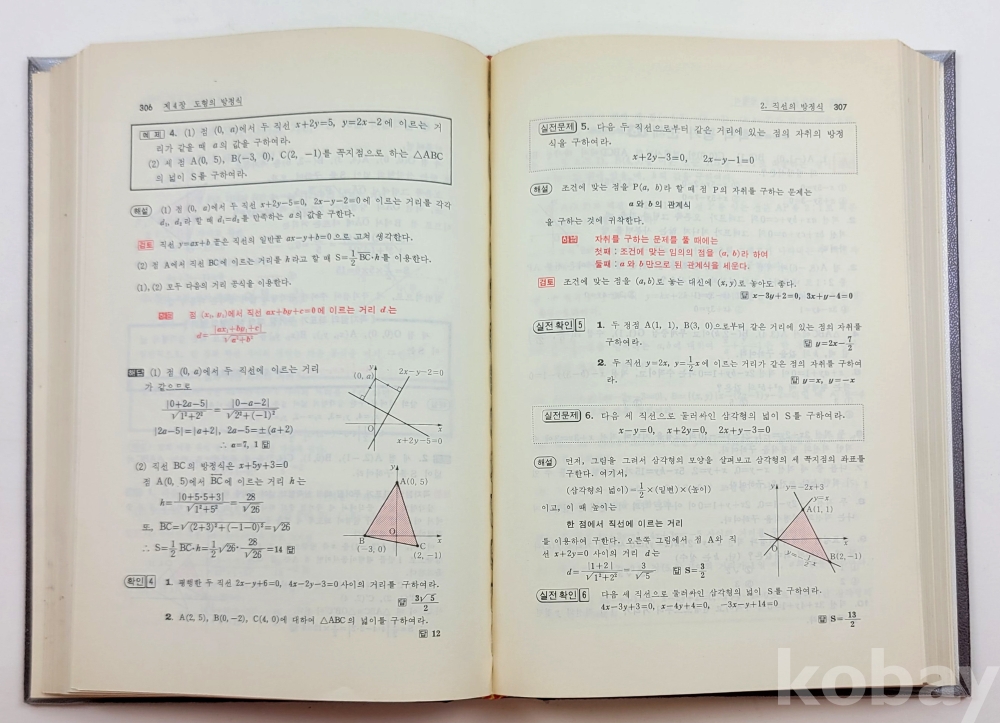 306 제 4 장 도형의 방정식
예 제 4. (1) 점 (0, a)에서 두 직선 x+2y=5, y=2x-2 에 이르는 거
리가 같을 때 a의 값을 구하여라.
(2) 세 점 A(0, 5), B(-3, 0), C(2, -1)를 꼭지점으로 하는 △ABC
의 넓이 S를 구하여라.
해설 (1) 점 (0, a)에서 두 직선 x+2y-5=0, 2x-y-2=0에 이르는 거리를 각각
d₁, d₂라 할 때 d₁=d₂를 만족하는 a의 값을 구한다.
검토 직선 y=ax+b 꼴은 직선의 일반꼴 ax-y+b=0으로 고쳐 생각한다.
(2) 점 A에서 직선 BC에 이르는 거리를 h라고 할 때 S=1/2 BC·h를 이용한다.
(1), (2) 모두 다음의 거리 공식을 이용한다.
점 (x₁, y₁)에서 직선 ax+by+c=0에 이르는 거리 d는
d=|ax₁+by₁+c|/√a²+b²
해답 (1) 점 (0, a)에서 두 직선에 이르는 거리
가 같으므로
|0+2a-5|/√1²+2² = |0-a-2|/√2²+(-1)²
|2a-5|=|a+2|, 2a-5=±(a+2)
∴ a=7, 1 답
y
(0, a)
2x-y-2=0
O
x
x+2y-5=0
(2) 직선 BC의 방정식은 x+5y+3=0
점 A(0, 5)에서 BC에 이르는 거리 h는
h=|0+5·5+3|/√1²+5²=28/√26
또, BC=√(2+3)²+(-1-0)²=√26
∴ S=1/2 BC·h=1/2√26·28/√26=14 답
y
A(0, 5)
O
x
B
(-3, 0)
C
(2, -1)
확인 4 1. 평행한 두 직선 2x-y+6=0, 4x-2y-3=0 사이의 거리를 구하여라.
답 3√5/2
2. A(2, 5), B(0, -2), C(4, 0)에 대하여 △ABC의 넓이를 구하여라.
답 12
2. 직선의 방정식 307
실전문제 5. 다음 두 직선으로부터 같은 거리에 있는 점의 자취의 방정
식을 구하여라.
x+2y-3=0, 2x-y-1=0
해설 조건에 맞는 점을 P(a, b)라 할 때 점 P의 자취를 구하는 문제는
a와 b의 관계식
을 구하는 것에 귀착한다.
자취를 구하는 문제를 풀 때에는
첫째 : 조건에 맞는 임의의 점을 (a, b)라 하여
둘째 : a와 b만으로 된 관계식을 세운다.
검토 조건에 맞는 점을 (a, b)로 놓는 대신에 (x, y)로 놓아도 좋다.
답 x-3y+2=0, 3x+y-4=0
실전확인 5 1. 두 정점 A(1, 1), B(3, 0)으로부터 같은 거리에 있는 점의 자취를
구하여라. 답 y=2x-7/2
2. 두 직선 y=2x, y=1/2x에 이르는 거리가 같은 점의 자취를 구하여
라. 답 y=x, y=-x
실전문제 6. 다음 세 직선으로 둘러싸인 삼각형의 넓이 S를 구하여라.
x-y=0, x+2y=0, 2x+y-3=0
해설 먼저, 그림을 그려서 삼각형의 모양을 살펴보고 삼각형의 세 꼭지점의 좌표를
구한다. 여기서,
(삼각형의 넓이)=1/2×(밑변)×(높이)
이고, 이 때 높이는
한 점에서 직선에 이르는 거리
를 이용하여 구한다. 오른쪽 그림에서 점 A와 직
선 x+2y=0 사이의 거리 d는
d=|1+2|/√1²+2²=3/√5 답 S=3/2
y
y=-2x+3
y=x
A(1, 1)
O
x
B(2, -1)
y=-1/2x
실전확인 6 다음 세 직선으로 둘러싸인 삼각형의 넓이 S를 구하여라.
4x-3y+3=0, x-4y+4=0, -3x-y+14=0
답 S=13/2
kobay